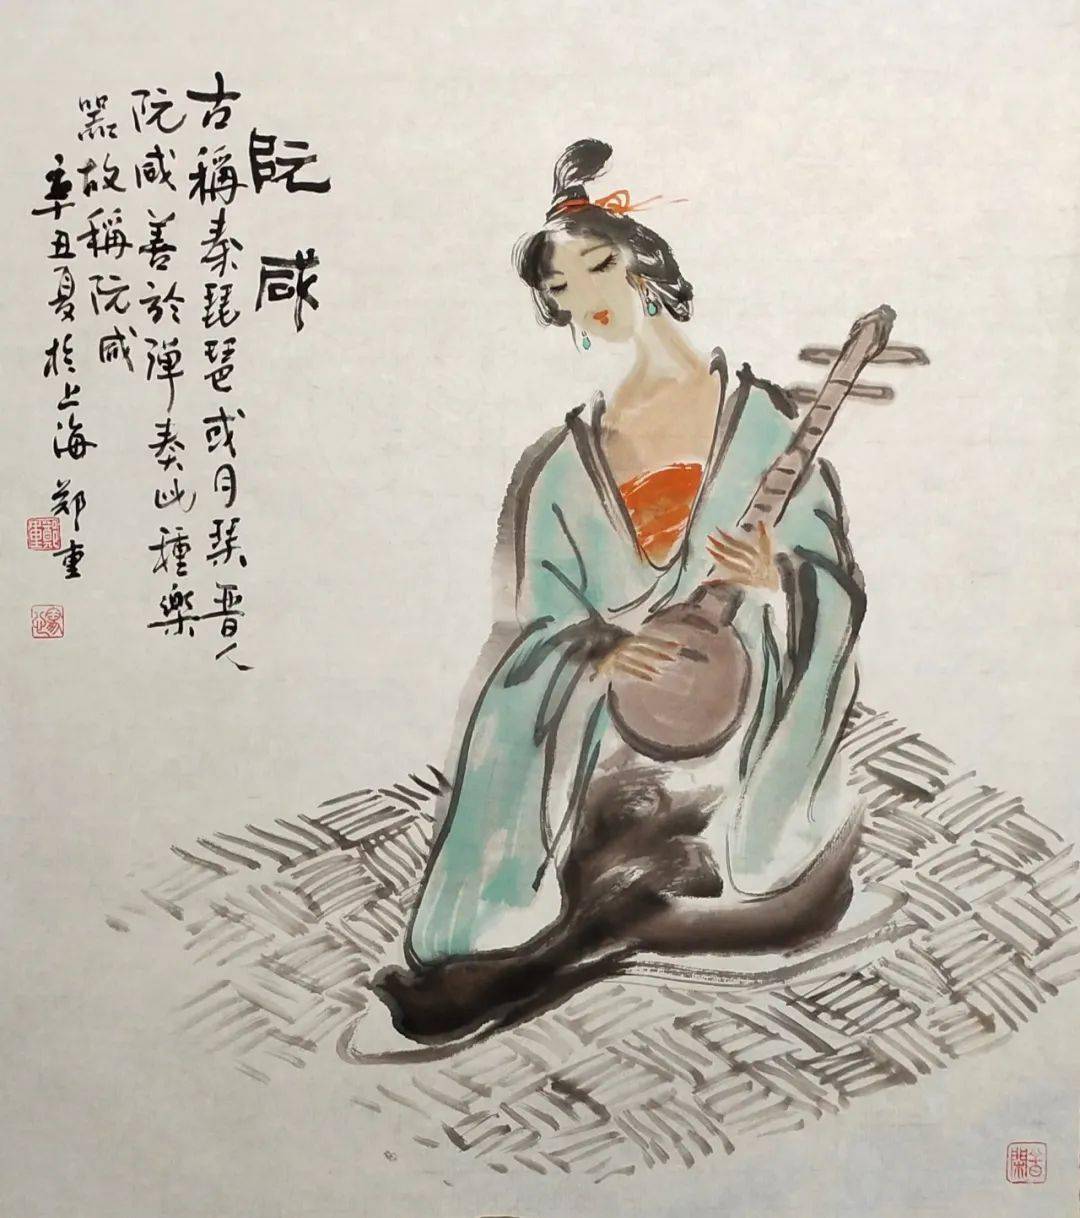 阮咸
古稱秦琵琶或月琴晋人
阮咸善於彈奏此種樂
器故稱阮咸
辛丑夏於上海 郑重
鄭重